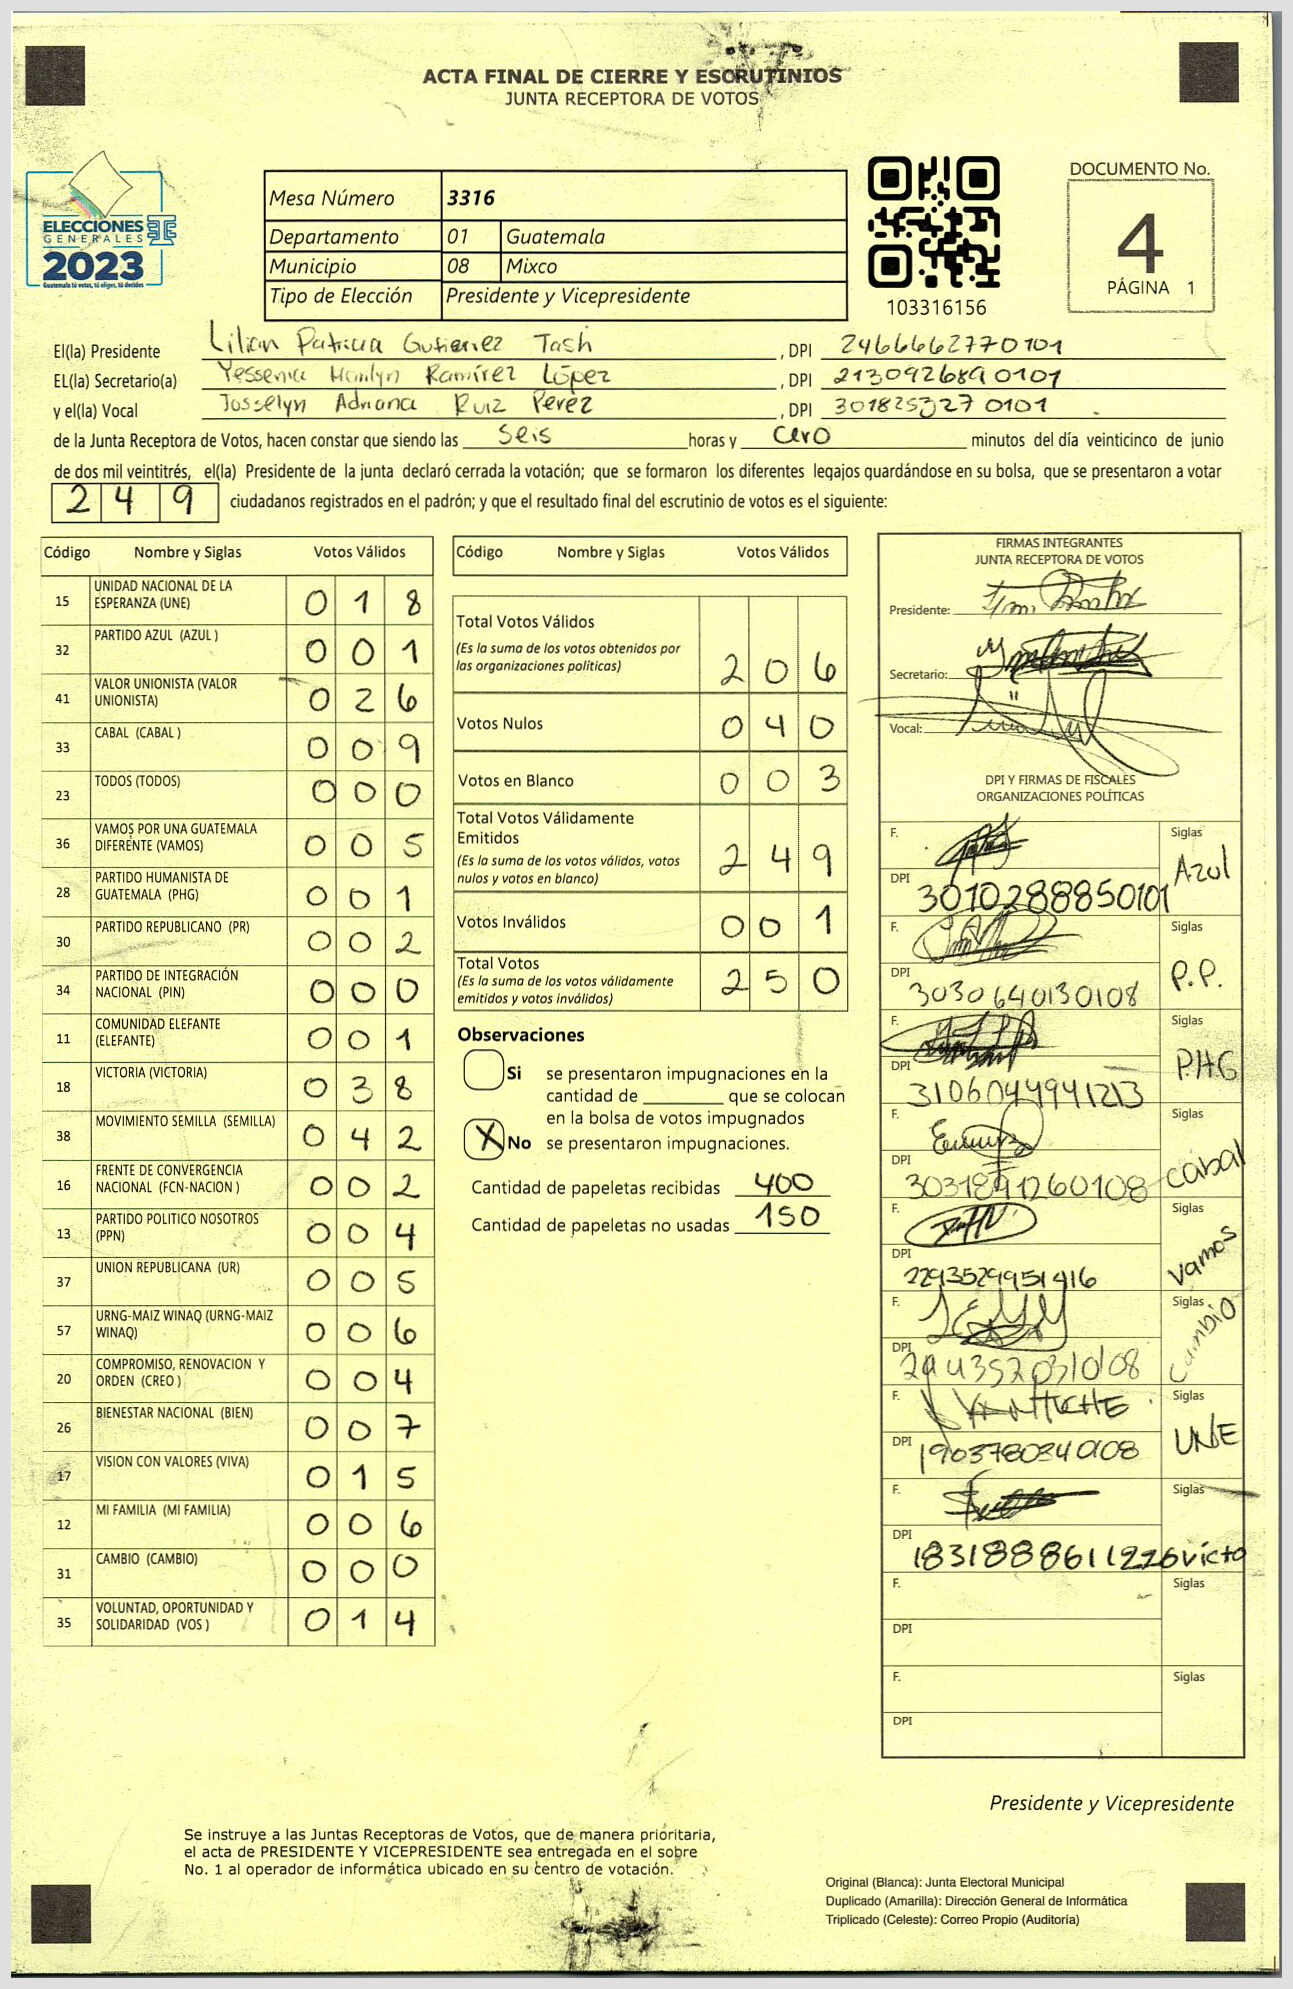 ACTA FINAL DE CIERRE Y ESCRUTINIOS
JUNTA RECEPTORA DE VOTOS
ELECCIONES
GENERALES
2023
Guatemala tú votas, tú eliges, tú decides
Mesa Número 3316
Departamento 01 Guatemala
Municipio 08 Mixco
Tipo de Elección Presidente y Vicepresidente
103316156
DOCUMENTO No.
4
PÁGINA 1
El(la) Presidente Lilian Patricia Gutierrez Tash , DPI 2466662770101
EL(la) Secretario(a) Yessenia Ramírez López , DPI 2130926890101
y el(la) Vocal Josselyn Adriana Ruiz Perez , DPI 3018253270101
de la Junta Receptora de Votos, hacen constar que siendo las seis horas y cero minutos del día veinticinco de junio
de dos mil veintitrés, el(la) Presidente de la junta declaró cerrada la votación; que se formaron los diferentes legajos guardándose en su bolsa, que se presentaron a votar
249 ciudadanos registrados en el padrón; y que el resultado final del escrutinio de votos es el siguiente:
Código Nombre y Siglas Votos Válidos
15 UNIDAD NACIONAL DE LA ESPERANZA (UNE) 0 1 8
32 PARTIDO AZUL (AZUL ) 0 0 1
41 VALOR UNIONISTA (VALOR UNIONISTA) 0 2 6
33 CABAL (CABAL ) 0 0 9
23 TODOS (TODOS) 0 0 0
36 VAMOS POR UNA GUATEMALA DIFERENTE (VAMOS) 0 0 5
28 PARTIDO HUMANISTA DE GUATEMALA (PHG) 0 0 1
30 PARTIDO REPUBLICANO (PR) 0 0 2
34 PARTIDO DE INTEGRACIÓN NACIONAL (PIN) 0 0 0
11 COMUNIDAD ELEFANTE (ELEFANTE) 0 0 1
18 VICTORIA (VICTORIA) 0 3 8
38 MOVIMIENTO SEMILLA (SEMILLA) 0 4 2
16 FRENTE DE CONVERGENCIA NACIONAL (FCN-NACION ) 0 0 2
13 PARTIDO POLITICO NOSOTROS (PPN) 0 0 4
37 UNION REPUBLICANA (UR) 0 0 5
57 URNG-MAIZ WINAQ (URNG-MAIZ WINAQ) 0 0 6
20 COMPROMISO, RENOVACION Y ORDEN (CREO ) 0 0 4
26 BIENESTAR NACIONAL (BIEN) 0 0 7
17 VISION CON VALORES (VIVA) 0 1 5
12 MI FAMILIA (MI FAMILIA) 0 0 6
31 CAMBIO (CAMBIO) 0 0 0
35 VOLUNTAD, OPORTUNIDAD Y SOLIDARIDAD (VOS ) 0 1 4
Código Nombre y Siglas Votos Válidos
Total Votos Válidos
(Es la suma de los votos obtenidos por las organizaciones políticas) 2 0 6
Votos Nulos 0 4 0
Votos en Blanco 0 0 3
Total Votos Válidamente Emitidos
(Es la suma de los votos válidos, votos nulos y votos en blanco) 2 4 9
Votos Inválidos 0 0 1
Total Votos
(Es la suma de los votos válidamente emitidos y votos inválidos) 2 5 0
Observaciones
Si se presentaron impugnaciones en la
cantidad de ________ que se colocan
en la bolsa de votos impugnados
X No se presentaron impugnaciones.
Cantidad de papeletas recibidas 400
Cantidad de papeletas no usadas 150
FIRMAS INTEGRANTES
JUNTA RECEPTORA DE VOTOS
Presidente:
Secretario:
Vocal:
DPI Y FIRMAS DE FISCALES
ORGANIZACIONES POLÍTICAS
F. Siglas Azul
DPI 3010288850101
F. Siglas P.P.
DPI 3030640130108
F. Siglas PHG
DPI 3106044941213
F. Siglas cabal
DPI 3031891260108
F. Siglas vamos
DPI 2293529951416
F. Siglas cambio
DPI 2943520310108
F. Siglas UNE
DPI 1903780340108
F. Siglas victo
DPI 1831888611226
F. Siglas
DPI
F. Siglas
DPI
Presidente y Vicepresidente
Se instruye a las Juntas Receptoras de Votos, que de manera prioritaria,
el acta de PRESIDENTE Y VICEPRESIDENTE sea entregada en el sobre
No. 1 al operador de informática ubicado en su centro de votación.
Original (Blanca): Junta Electoral Municipal
Duplicado (Amarilla): Dirección General de Informática
Triplicado (Celeste): Correo Propio (Auditoría)